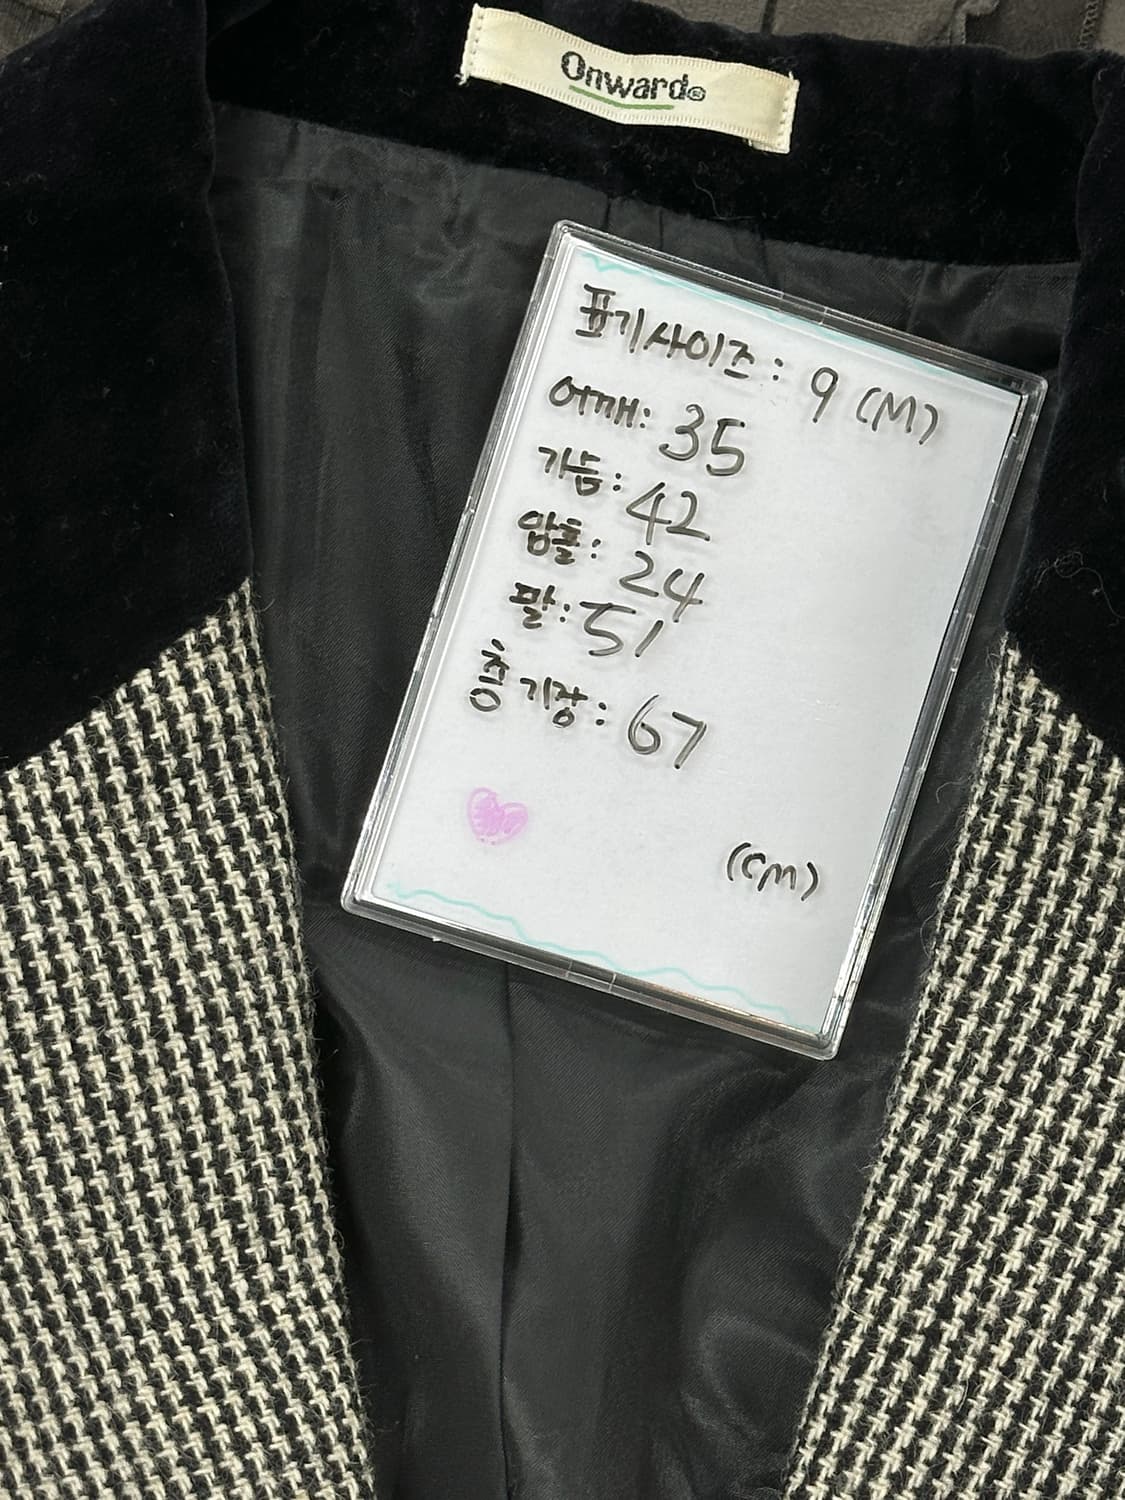 Onward®
표기사이즈: 9 (M)
어깨: 35
가슴: 42
암홀: 24
팔: 51
총 기장: 67
(CM)